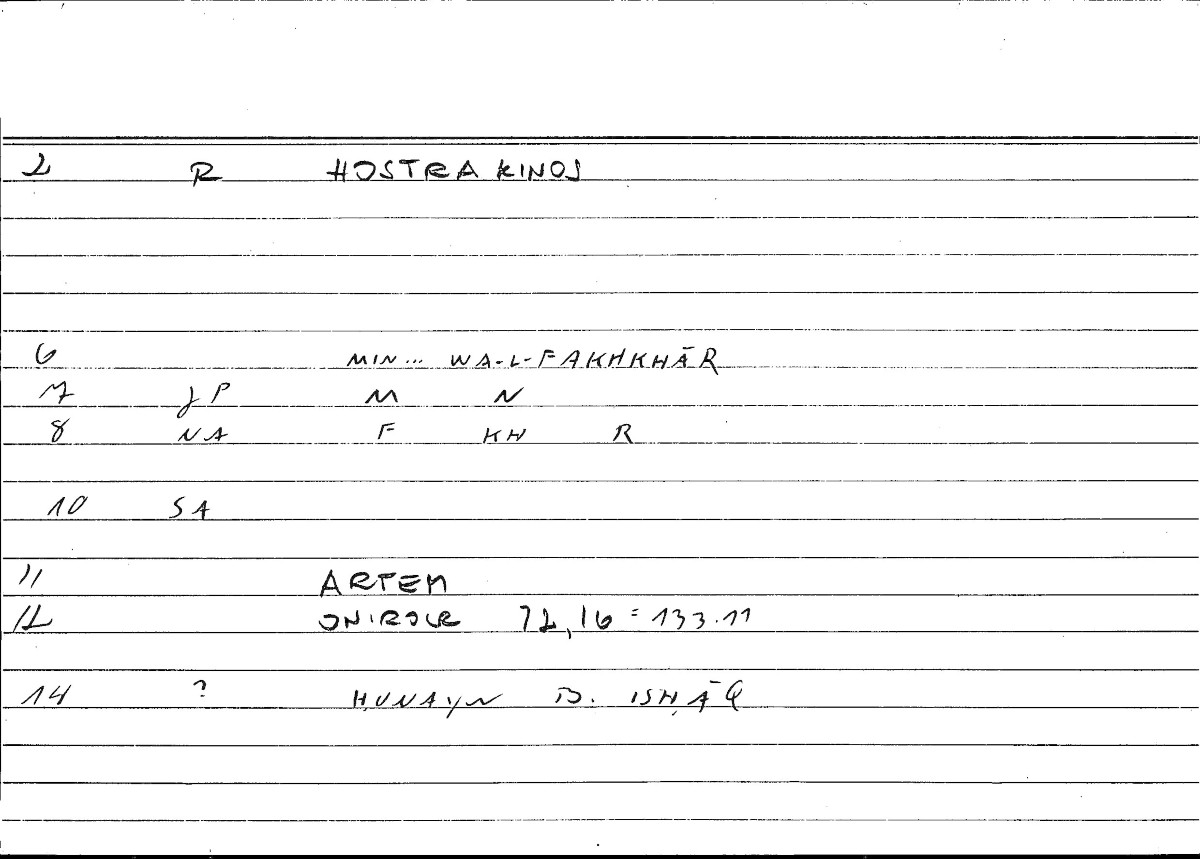 2 R HOSTRAKINOS
6 MIN... WA-L-FAKHKHĀR
7 JP M N
8 NA F KH R
10 SA
11 ARTEM
12 ONIROCR 72,16 = 133.11
14 ? ḤUNAYN B. ISḤĀQ